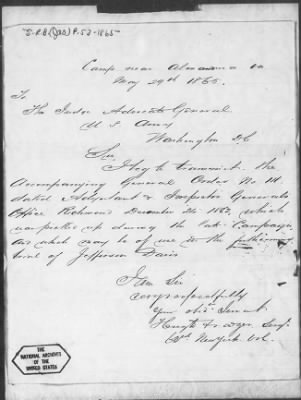 "S.P.B. (Jas) P. 53-1865"
Camp near Alexandria Va
May 29th 1865.
To
The Judge Advocate General
U S Army
Washington D.C
Sir
I beg to transmit the
Accompanying General Order No
dated Adjutant & Inspector Generals
Office Richmond December 24 186, which
was picked up during the late Campaign
and which may be of use in the
trial of Jefferson Davis
I am Sir
very respectfully
your obdt Servant
Surg
New York Vol.
THE
NATIONAL ARCHIVES
OF THE
UNITED STATES